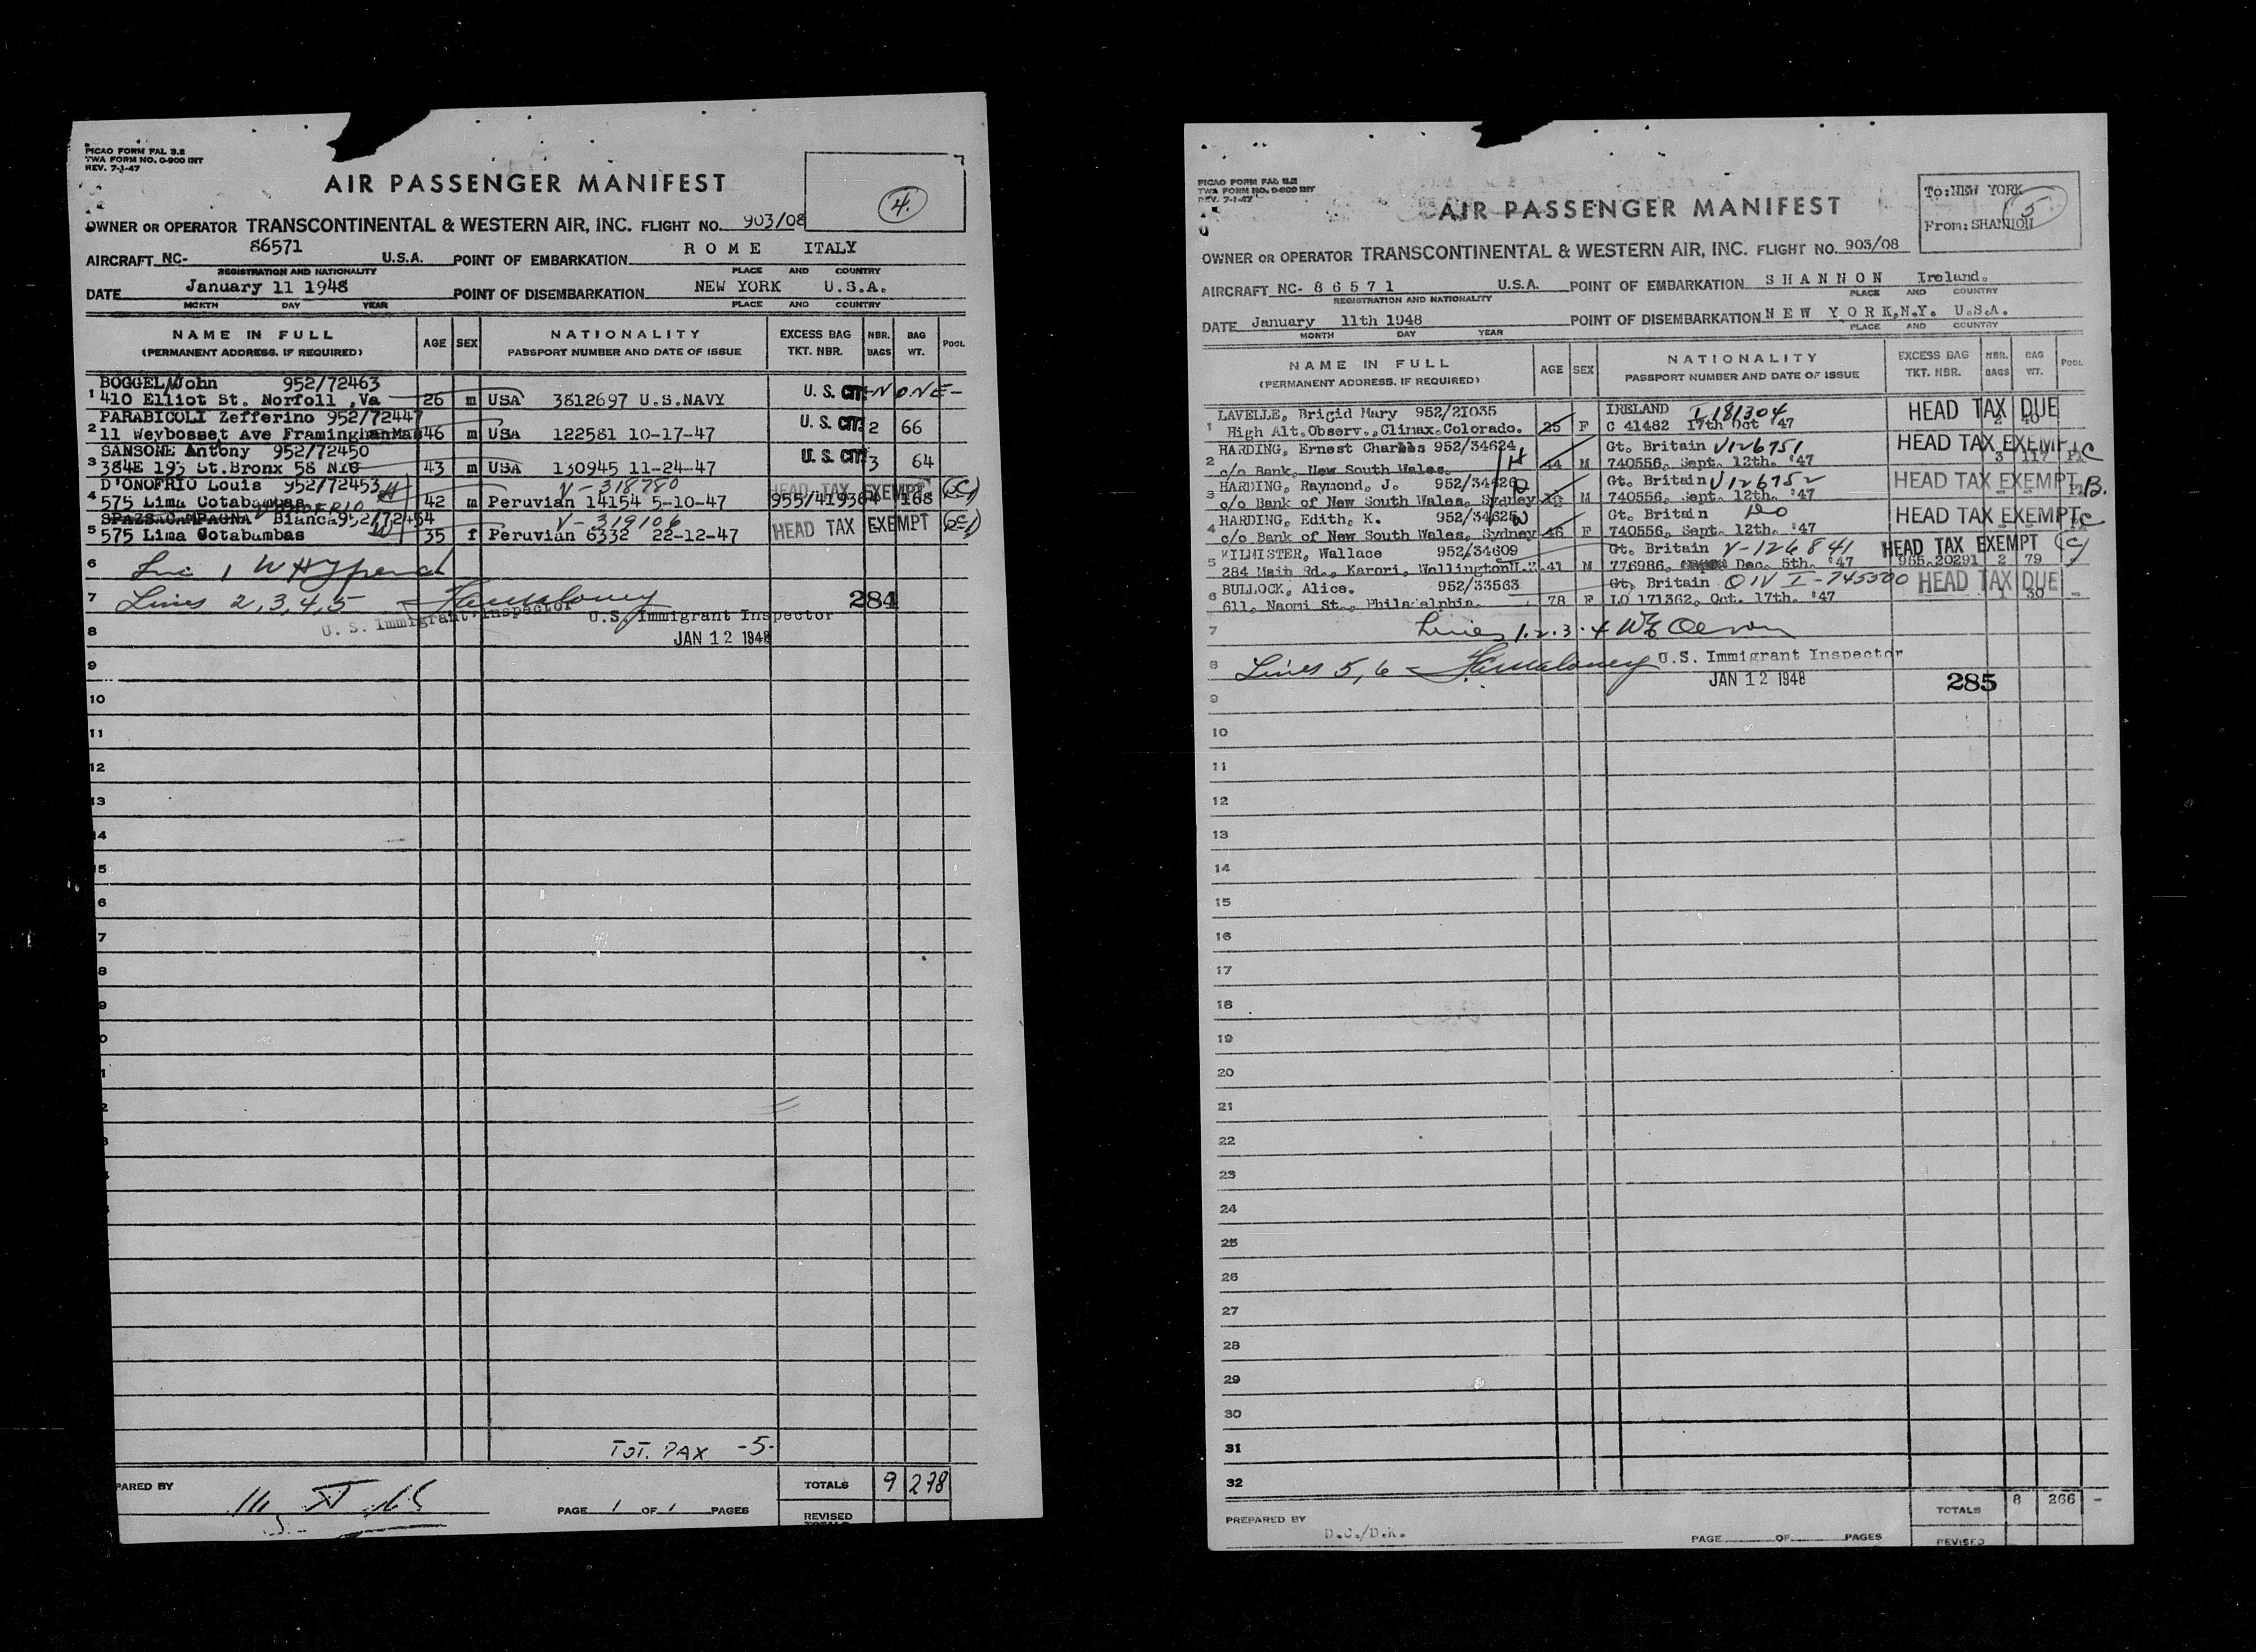 PICAO FORM FAL 3.2
TWA FORM NO. O-900 INT
REV. 7-1-47
AIR PASSENGER MANIFEST
4.
OWNER OR OPERATOR TRANSCONTINENTAL & WESTERN AIR, INC. FLIGHT NO. 903/08
AIRCRAFT NC- 86571 U.S.A. POINT OF EMBARKATION ROME ITALY
REGISTRATION AND NATIONALITY PLACE AND COUNTRY
DATE January 11 1948 POINT OF DISEMBARKATION NEW YORK U.S.A.
MONTH DAY YEAR PLACE AND COUNTRY
NAME IN FULL AGE SEX NATIONALITY EXCESS BAG NBR. BAG POOL
(PERMANENT ADDRESS, IF REQUIRED) PASSPORT NUMBER AND DATE OF ISSUE TKT. NBR. BAGS WT.
BOGGEL John 952/72463
1 410 Elliot St. Norfoll ,Va 26 m USA 3812697 U.S.NAVY U. S. CIT. -NONE-
PARABICOLI Zefferino 952/72447
2 11 Weybosset Ave Framingham Mas 46 m USA 122581 10-17-47 U. S. CIT. 2 66
SANSONE Antony 952/72450
3 384E 193 St.Bronx 58 NYC 43 m USA 130945 11-24-47 U. S. CIT. 3 64
D'ONOFRIO Louis 952/72453 V-318780 HEAD TAX EXEMPT
4 575 Lima Cotabambas 42 m Peruvian 14154 5-10-47 955/41936 4 168
D'ONOFRIO
SPAZSACAMPAGNA Bianca 952/72454 V-319106
5 575 Lima Cotabambas W 35 f Peruvian 6332 22-12-47 HEAD TAX EXEMPT
6 Line 1
7 Lines 2,3,4,5 284
U. S. Immigrant Inspector U.S. Immigrant Inspector
8 JAN 12 1948
9
10
11
12
13
14
15
6
7
8
9
0
1
2
TOT. PAX -5-
PARED BY PAGE 1 OF 1 PAGES TOTALS 9 278
REVISED
PICAO FORM FAL 3.2
TWA FORM NO. O-900 INT
REV. 7-1-47
AIR PASSENGER MANIFEST
To: NEW YORK
5
From: SHANNON
OWNER OR OPERATOR TRANSCONTINENTAL & WESTERN AIR, INC. FLIGHT NO. 903/08
AIRCRAFT NC- 86571 U.S.A. POINT OF EMBARKATION SHANNON Ireland.
REGISTRATION AND NATIONALITY PLACE AND COUNTRY
DATE January 11th 1948 POINT OF DISEMBARKATION NEW YORK,N.Y. U.S.A.
MONTH DAY YEAR PLACE AND COUNTRY
NAME IN FULL AGE SEX NATIONALITY EXCESS BAG NBR. BAG POOL
(PERMANENT ADDRESS, IF REQUIRED) PASSPORT NUMBER AND DATE OF ISSUE TKT. NBR. BAGS WT.
LAVELLE, Brigid Mary 952/21035 IRELAND I 181304 HEAD TAX DUE
1 High Alt.Observ.,Climax.Colorado. 25 F C 41482 17th Oct '47 2 40
HARDING, Ernest Charles 952/34624 Gt. Britain V126751 HEAD TAX EXEMPT C
2 c/o Bank, New South Wales. H 44 M 740556, Sept. 12th. '47 3 117
HARDING, Raymond, J. 952/34626 Gt. Britain V126752 HEAD TAX EXEMPT B.
3 c/o Bank of New South Wales, Sydney M 740556, Sept. 12th. '47
HARDING, Edith, K. 952/34625 W Gt. Britain Do HEAD TAX EXEMPT C
4 c/o Bank of New South Wales, Sydney 46 F 740556, Sept. 12th. '47
WILMISTER, Wallace 952/34609 Gt. Britain V-126841 HEAD TAX EXEMPT (C)
5 284 Main Rd., Karori, Wellington N.Z. 41 M 776986, Dec. 5th. '47 955.20291 2 79
BULLOCK, Alice. 952/33563 Gt. Britain QIV I-745500 HEAD TAX DUE
6 611, Naomi St., Philadelphia. 78 F LO 171362, Oct. 17th. '47 1 30 -
7 Lines 1.2.3.4
8 Lines 5,6 U.S. Immigrant Inspector
JAN 12 1948 285
9
10
11
12
13
14
15
16
17
18
19
20
21
22
23
24
25
26
27
28
29
30
31
32
TOTALS 8 266 -
PREPARED BY D.C./D.K. PAGE OF PAGES
REVISED